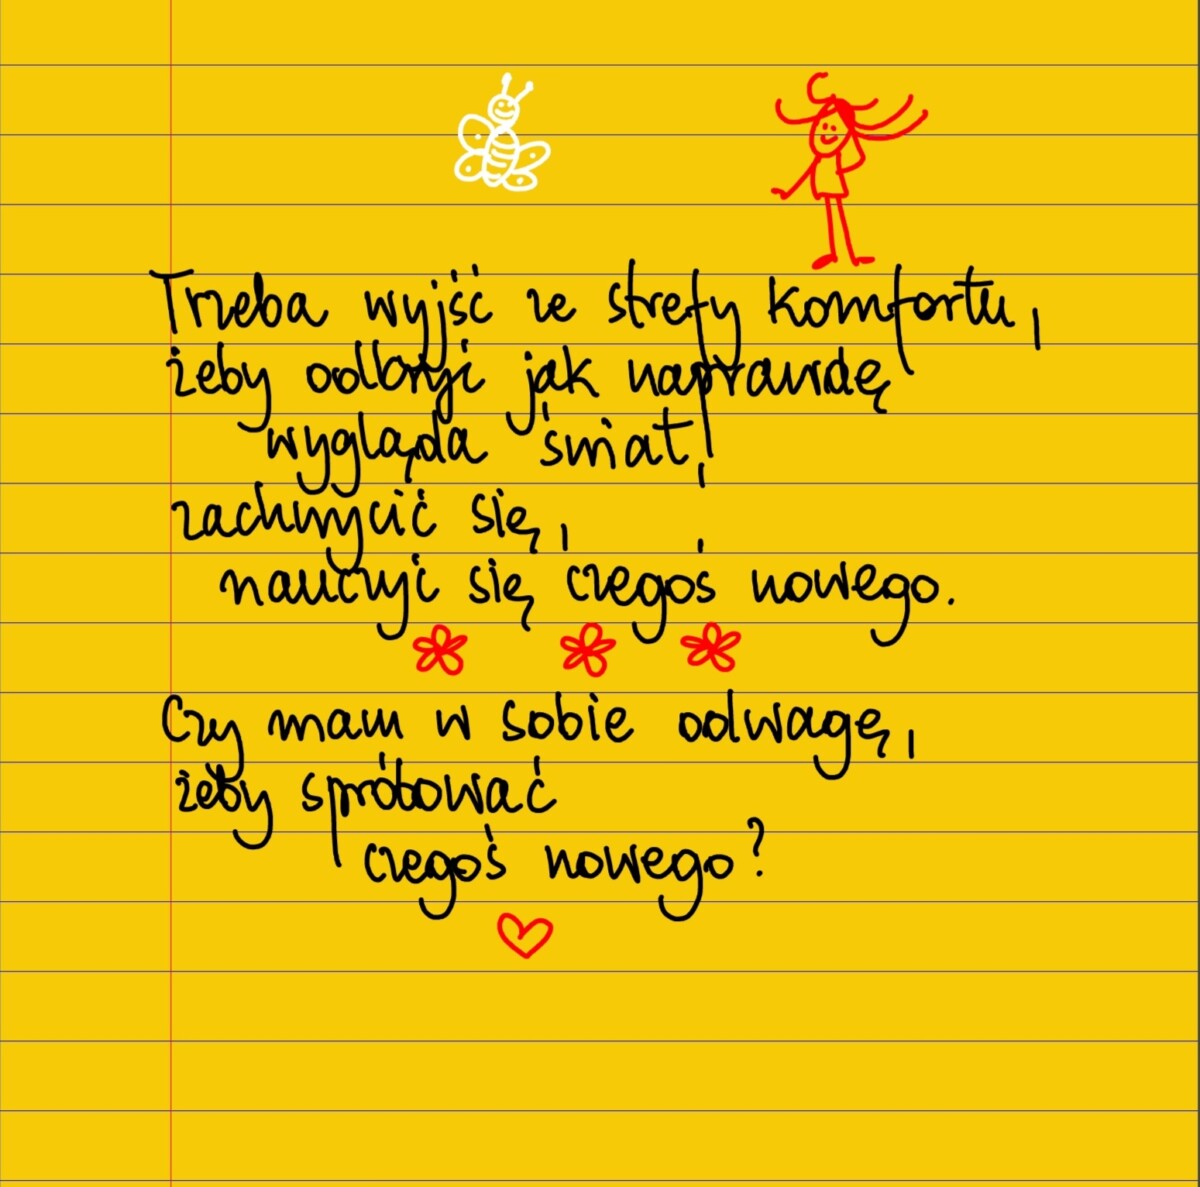 Trzeba wyjść ze strefy komfortu,
żeby odkryć jak naprawdę
wygląda świat,
zachwycić się,
nauczyć się czegoś nowego.
Czy mam w sobie odwagę,
żeby spróbować
czegoś nowego?